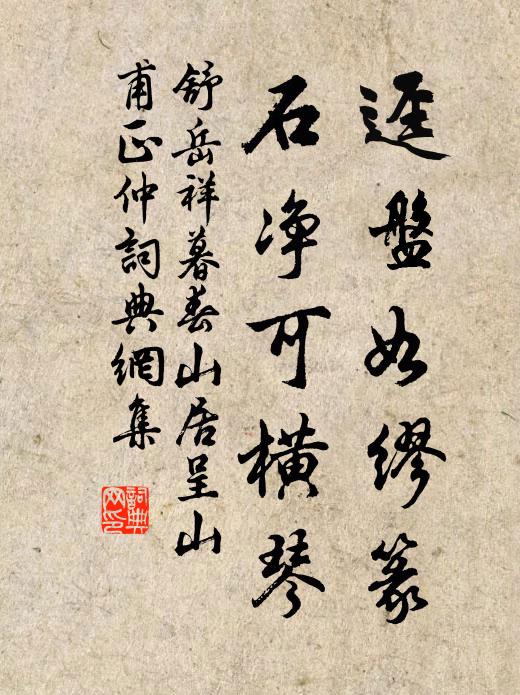 逕盤如繆篆
石净可横琴
舒岳祥暮春山居呈山
甫正仲詞典網集
詞典网印